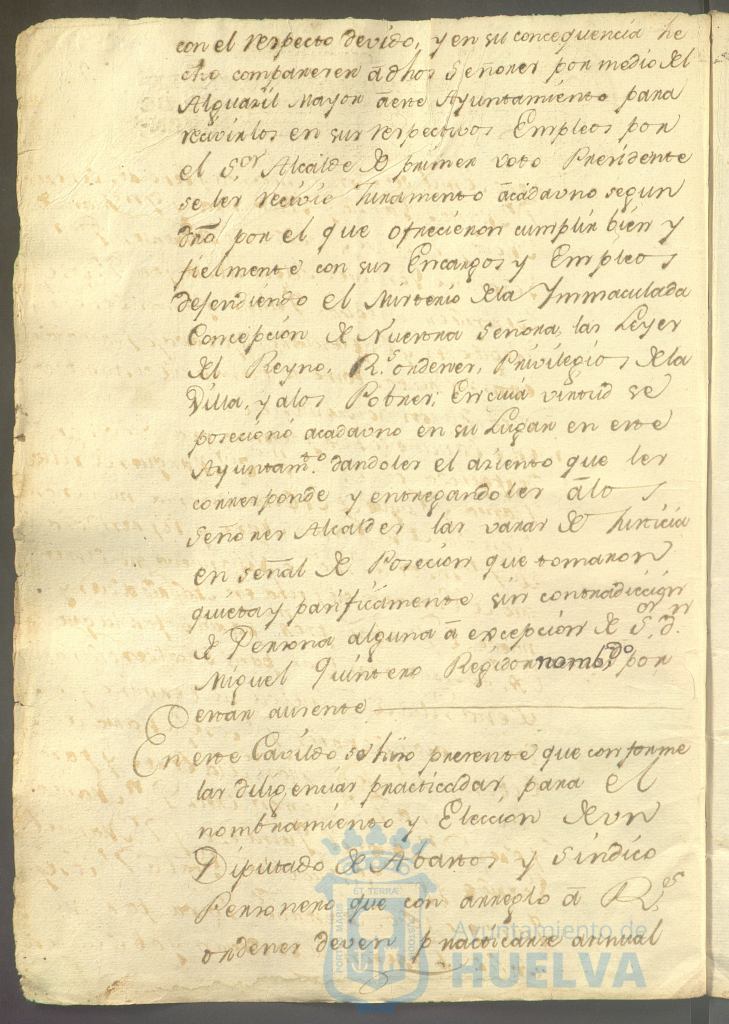 con el respecto devido, y en su consequencia he
cho comparecer a dhos Señores por medio del
Alguazil Mayor a este Ayuntamiento para
recivirlos en sus respectivos Empleos por
el S.or Alcalde de primer voto Presidente
se les recivio Juramento a cada uno segun
dro por el que ofrecieron cumplir bien y
fielmente con sus Encargos y Empleos
defendiendo el Misterio de la Immaculada
Concepcion de Nuestra Señora, las Leyes
del Reyno, R.s ordenes, Privilegios de la
Villa, y a los Pobres; En cuia virtud se
posecionó a cada uno en su Lugar en este
Ayuntam.to dandoles el asiento que les
corresponde y entregandoles a los
Señores Alcaldes las varas de Justicia
en señal de Posecion que tomaron
quieta y pacificamente sin contradiccion
de Persona alguna a excepcion de S.or d.n
Miguel Quintero Regidor nomb.do por
estar ausente
En este Cavildo se hizo presente que conforme
las diligencias practicadas para el
nombramiento y Eleccion de un
Diputado de Abastos y Sindico
Personero que con arreglo a R.es
ordenes deven practicarse annual
PORTUS MARIS ET TERRAE CUSTODIA
Ayuntamiento de
HUELVA